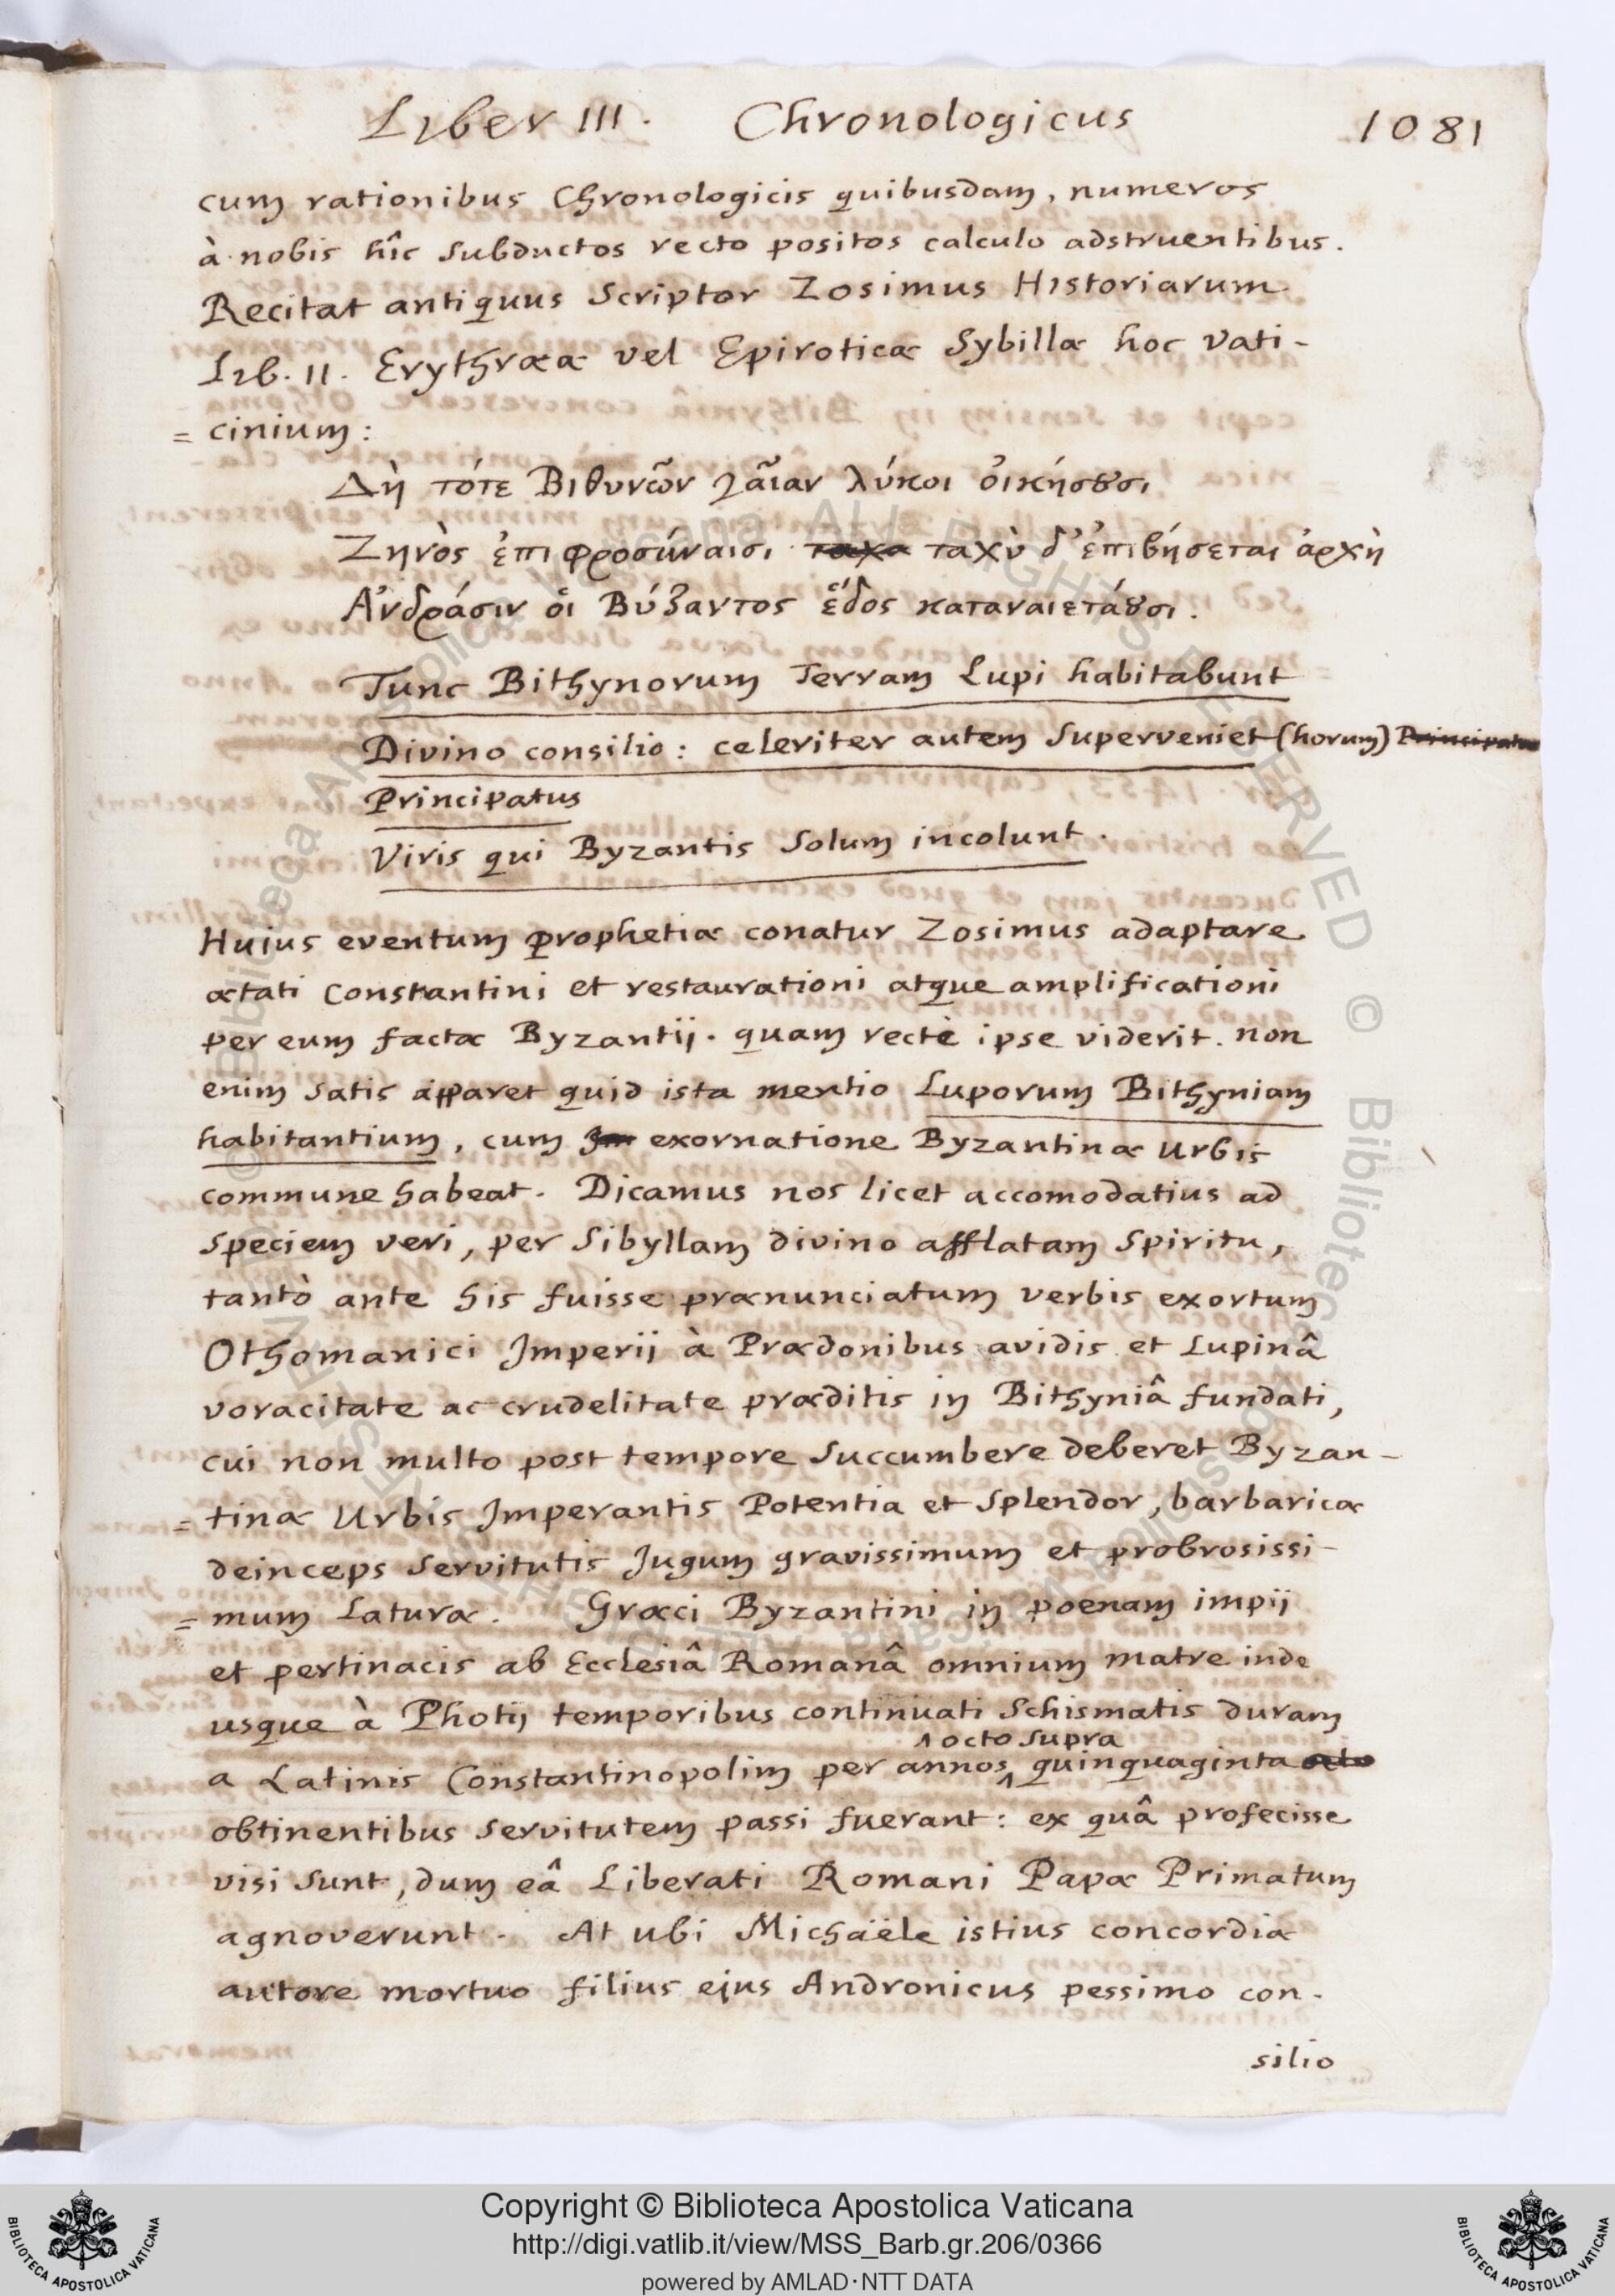 Liber III. Chronologicus 1081
cum rationibus Chronologicis quibusdam, numeros
à nobis hîc subductos recto positos calculo adstruentibus.
Recitat antiquus Scriptor Zosimus Historiarum
Lib. II. Erythrææ vel Epiroticæ Sybillæ hoc vati-
= cinium:
Δὴ τότε Βιθυνῶν γαῖαν λύκοι οἰκήσȣσι
Ζηνὸς ἐπιφροσύναισι ταχα ταχὺ δ' ἐπιβήσεται ἀρχὴ
Ἀνδράσιν οἳ Βύζαντος ἕδος καταναιετάȣσι.
Tunc Bithynorum Terram Lupi habitabunt
Divino consilio: celeriter autem superveniet (horum) Principatus
Principatus
Viris qui Byzantis Solum incolunt.
Huius eventum prophetiæ conatur Zosimus adaptare
ætati Constantini et restaurationi atque amplificationi
per eum factæ Byzantij. quam rectè ipse viderit. non
enim satis apparet quid ista mentio Luporum Bithyniam
habitantium, cum exornatione Byzantinæ Urbis
commune habeat. Dicamus nos licet accomodatius ad
speciem veri, per Sibyllam divino afflatam Spiritu,
tantò ante his fuisse prænunciatum verbis exortum
Othomanici Imperij à Prædonibus avidis et Lupinâ
voracitate ac crudelitate præditis in Bithyniâ fundati,
cui non multo post tempore succumbere deberet Byzan-
= tinæ Urbis Imperantis Potentia et Splendor, barbaricæ
deinceps servitutis Jugum gravissimum et probrosissi-
= mum Latura. Græci Byzantini in poenam impij
et pertinacis ab Ecclesiâ Romanâ omnium matre inde
usque à Photij temporibus continuati Schismatis duram
^ octo supra
a Latinis Constantinopolim per annos ^ quinquaginta octo
obtinentibus servitutem passi fuerant: ex quâ profecisse
visi sunt, dum eâ Liberati Romani Papæ Primatum
agnoverunt. At ubi Michaële istius concordiæ
autore mortuo filius ejus Andronicus pessimo con-
silio
© Biblioteca Apostolica Vaticana ALL RIGHTS RESERVED © Biblioteca Apostolica Vaticana ALL RIGHTS RESERVED
Copyright © Biblioteca Apostolica Vaticana
http://digi.vatlib.it/view/MSS_Barb.gr.206/0366
powered by AMLAD·NTT DATA
BIBLIOTECA APOSTOLICA VATICANA
BIBLIOTECA APOSTOLICA VATICANA